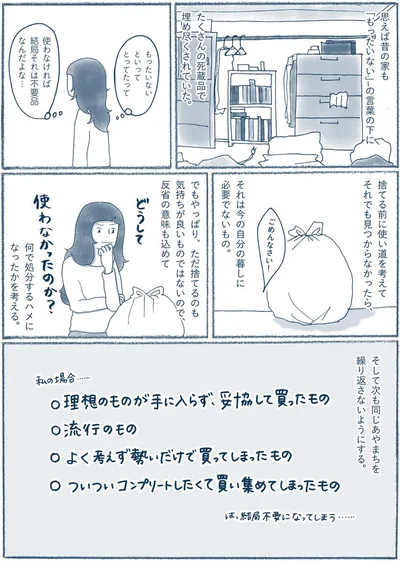 思えば昔の家も
「もったいない」の言葉の下に
たくさんの死蔵品で
埋め尽くされていた。
もったいない
といって
とってたって
使わなければ
結局それは不要品
なんだよな…
捨てる前に使い道を考えて
それでも見つからなかったら、
それは今の自分の暮しに
必要でないもの。
ごめんなさい!
でもやっぱり、ただ捨てるのも
気持ちが良いものではないので、
反省の意味も込めて
どうして
使わなかったのか?
何で処分するハメに
なったかを考える。
そして次も同じあやまちを
繰り返さないようにする。
私の場合……
○理想のものが手に入らず、妥協して買ったもの
○流行のもの
○よく考えず勢いだけで買ってしまったもの
○ついついコンプリートしたくて買い集めてしまったもの
は、結局不要になってしまう……